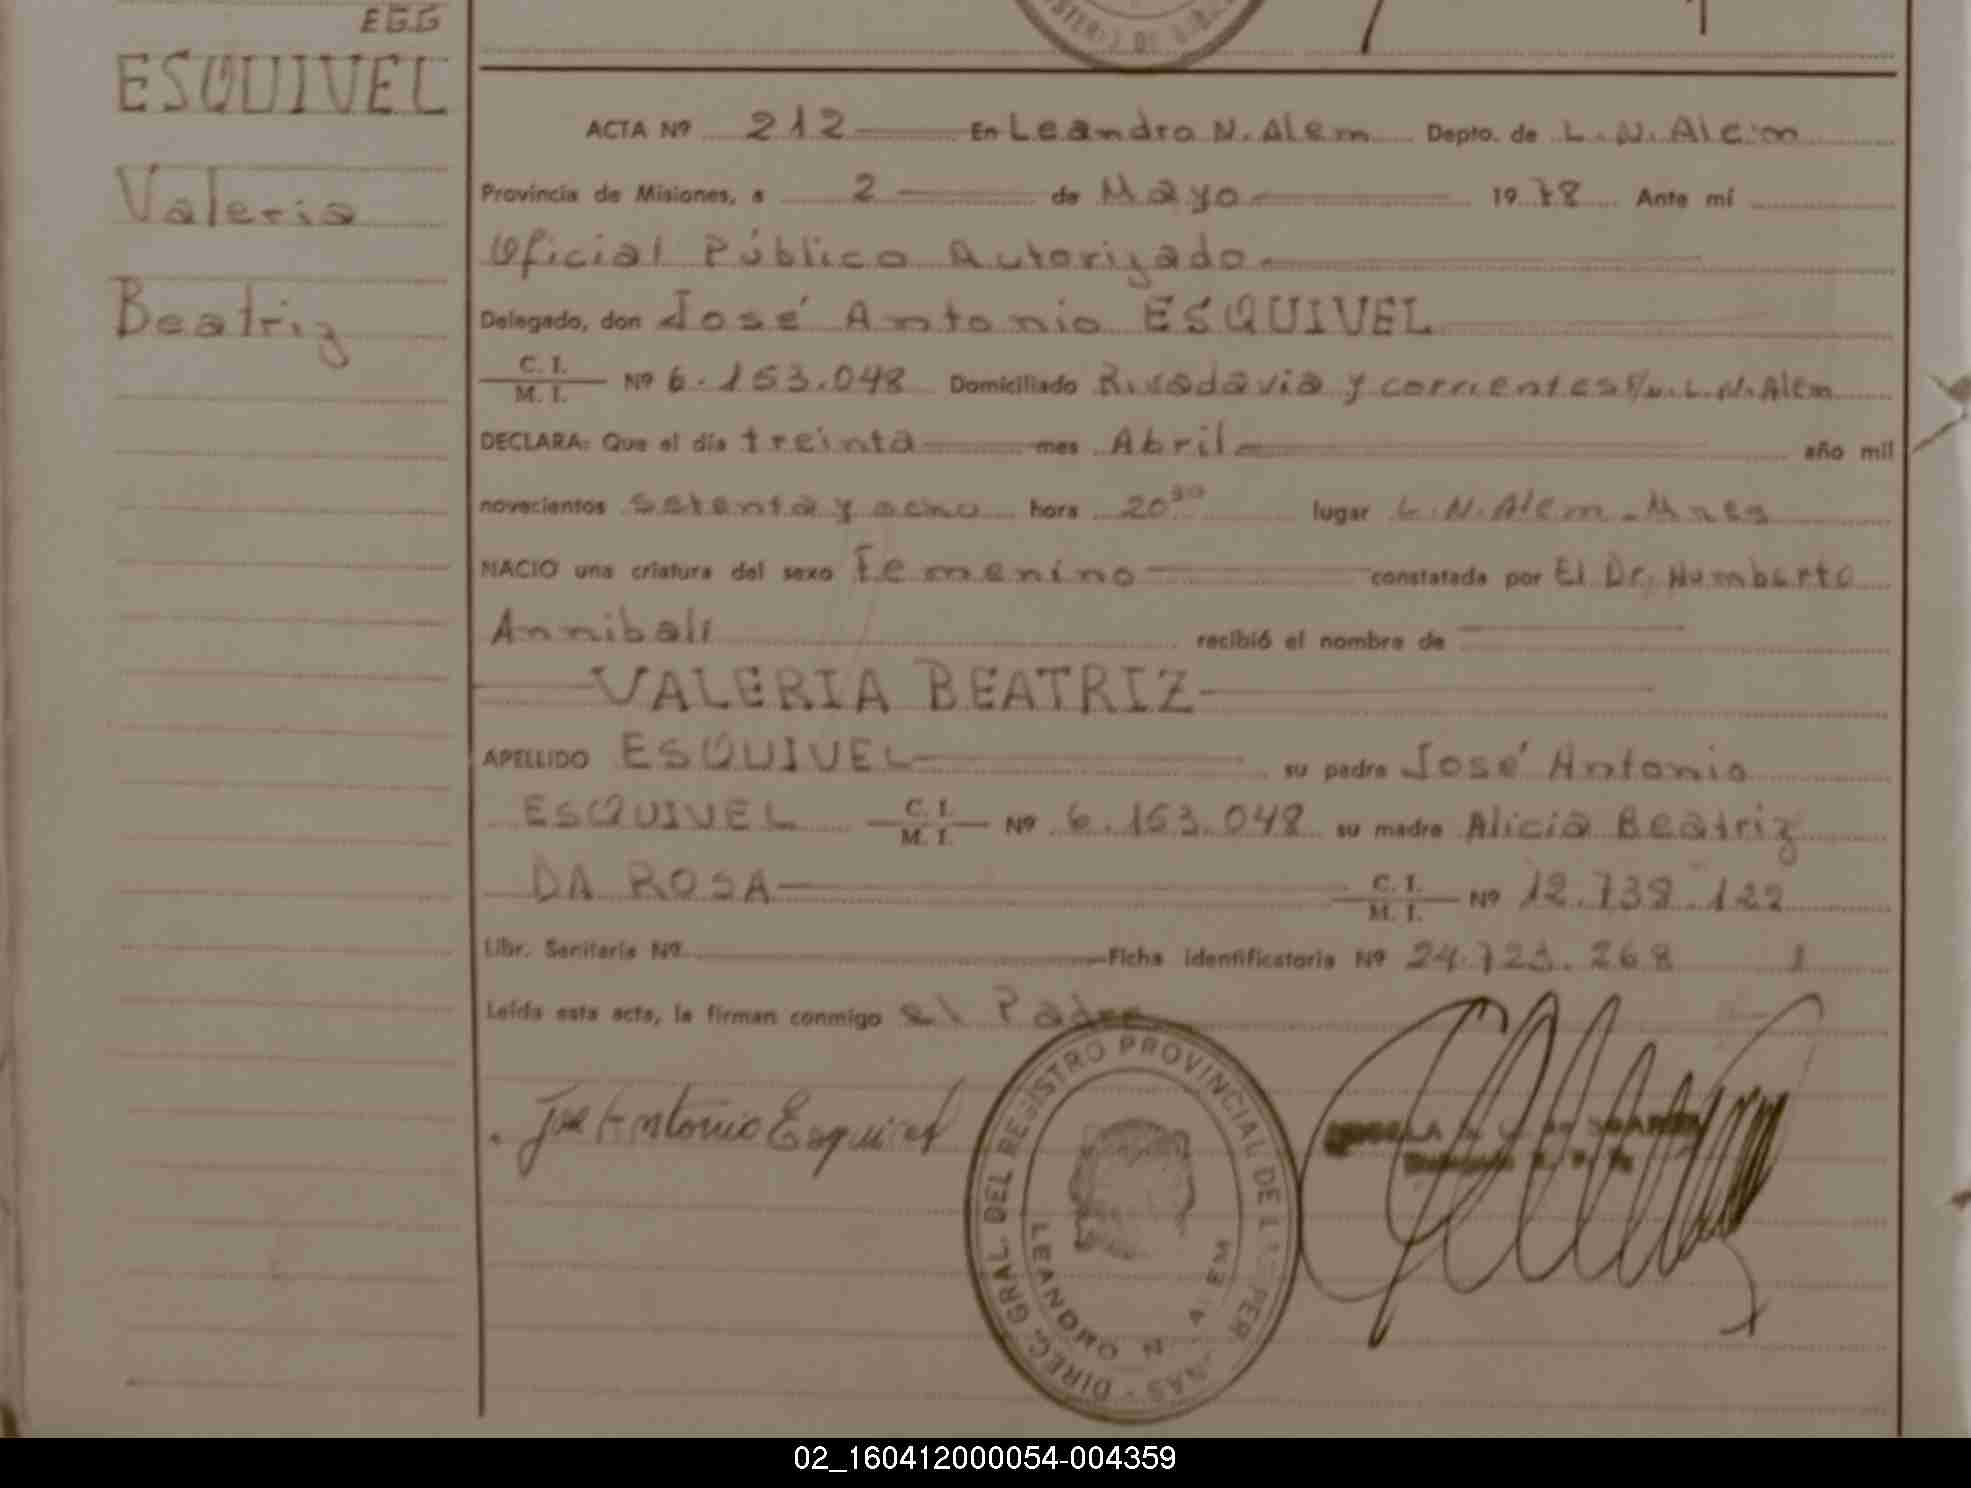 EGG
ESQUIVEL
Valeria
Beatriz
ACTA Nº 212 En Leandro N. Alem Depto. de L. N. Alem
Provincia de Misiones, a 2 de Mayo 1978 Ante mí
Oficial Público Autorizado
Delegado, don José Antonio ESQUIVEL
C. I.
M. I. Nº 6.153.048 Domiciliado Rivadavia y corrientes S/n. L.N. Alem
DECLARA: Que el día treinta mes Abril año mil
novecientos setenta y ocho hora 20³⁰ lugar L.N. Alem - Mnes
NACIO una criatura del sexo Femenino constatada por El Dr. Humberto
Annibali recibió el nombre de
VALERIA BEATRIZ
APELLIDO ESQUIVEL su padre José Antonio
ESQUIVEL C. I. M. I. Nº 6.153.048 su madre Alicia Beatriz
DA ROSA C. I. M. I. Nº 12.738.122
Libr. Sanitaria Nº Ficha identificatoria Nº 24.723.268 1
Leída esta acta, la firman conmigo el Padre
José Antonio Esquivel
DIREC. GRAL. DEL REGISTRO PROVINCIAL DE PER
LEANDRO N. ALEM
02_160412000054-004359